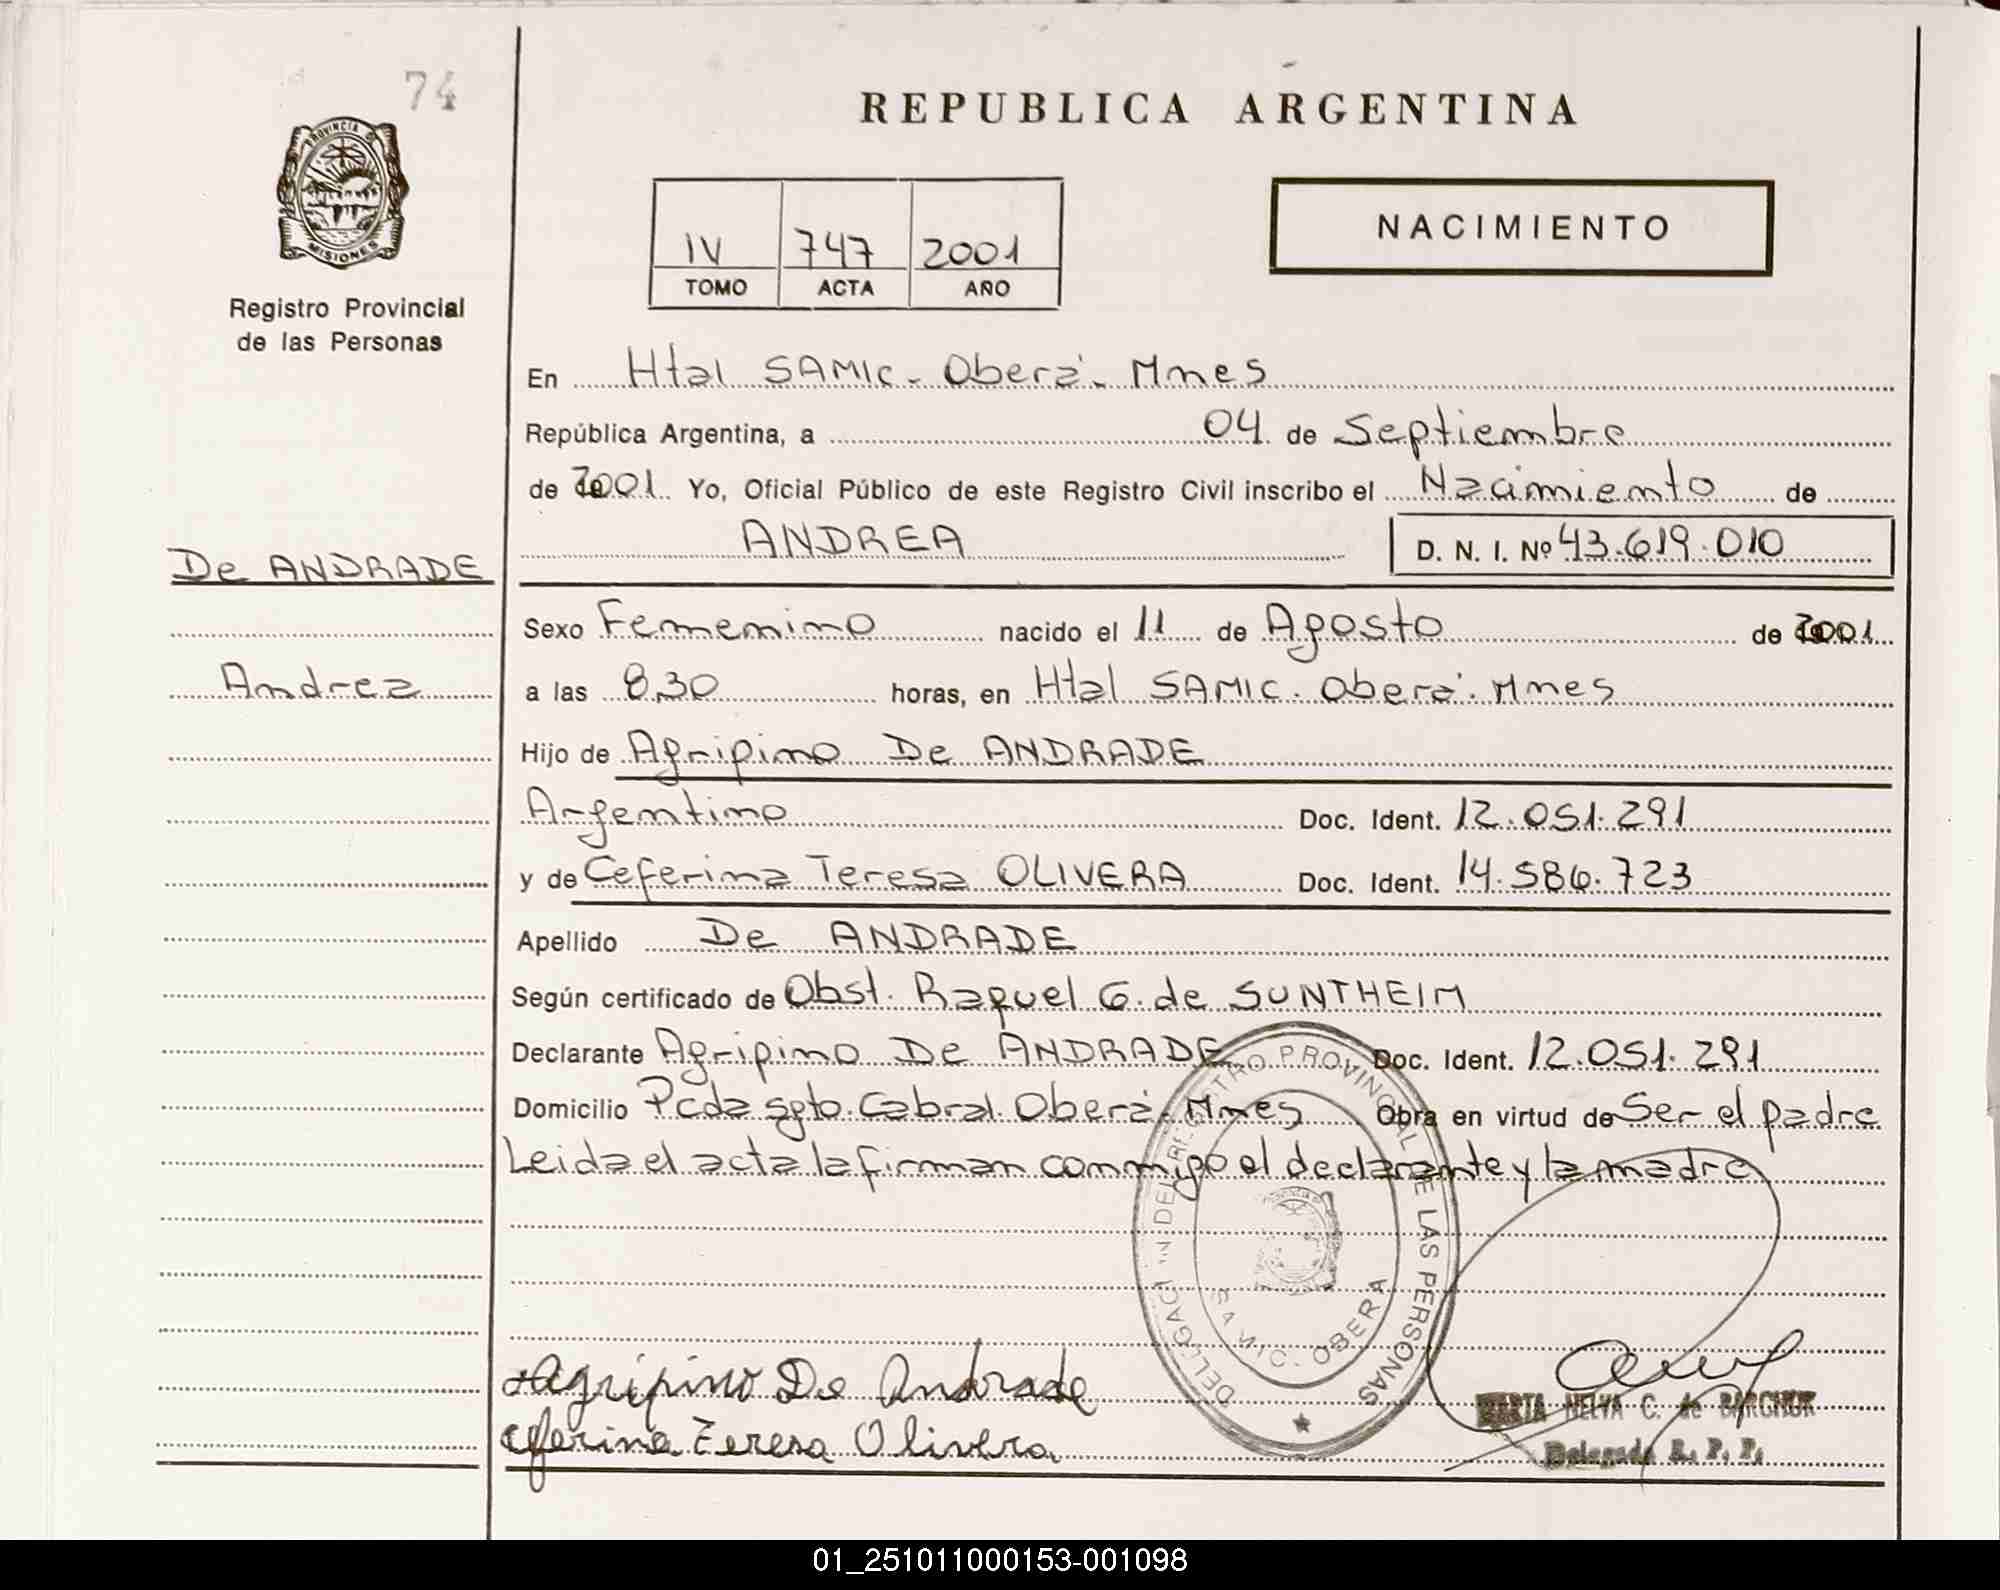 74
REPUBLICA ARGENTINA
PROVINCIA D
MISIONES
Registro Provincial
de las Personas
IV 747 2001
TOMO ACTA AÑO
NACIMIENTO
En Htal SAMIC - Oberá - Mnes
República Argentina, a 04 de Septiembre
de 2001 Yo, Oficial Público de este Registro Civil inscribo el Nacimiento de
ANDREA D. N. I. Nº 43.619.010
De ANDRADE
Sexo Femenino nacido el 11 de Agosto de 2001
Andrea
a las 8,30 horas, en Htal SAMIC - Oberá - Mnes
Hijo de Agripino De ANDRADE
Argentino Doc. Ident. 12.051.291
y de Ceferina Teresa OLIVERA Doc. Ident. 14.586.723
Apellido De ANDRADE
Según certificado de Obst. Raquel G. de SUNTHEIM
Declarante Agripino De ANDRADE Doc. Ident. 12.051.291
Domicilio Pcda Sgto. Cabral. Oberá - Mnes Obra en virtud de Ser el padre
Leida el acta la firman conmigo el declarante y la madre
DELEGACION DEL REGISTRO PROVINCIAL DE LAS PERSONAS
SAMIC - OBERA
Agripino De Andrade
Ceferina Teresa Olivera
MARTA NELVA C. de BARCHUK
Delegada R. P. P.
01_251011000153-001098